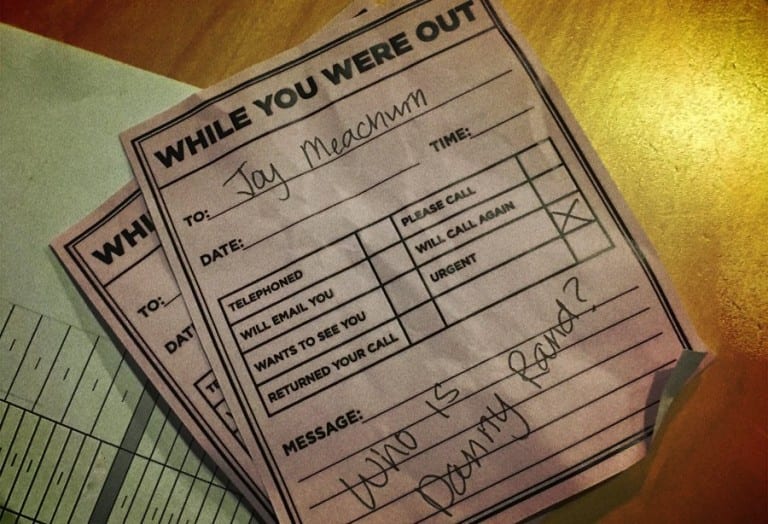 WHILE YOU WERE OUT
TO: Joy Meachum
DATE: TIME:
TELEPHONED PLEASE CALL
WILL EMAIL YOU WILL CALL AGAIN
WANTS TO SEE YOU URGENT X
RETURNED YOUR CALL
MESSAGE:
Who is
Danny Rand?
WHI
TO:
DAT